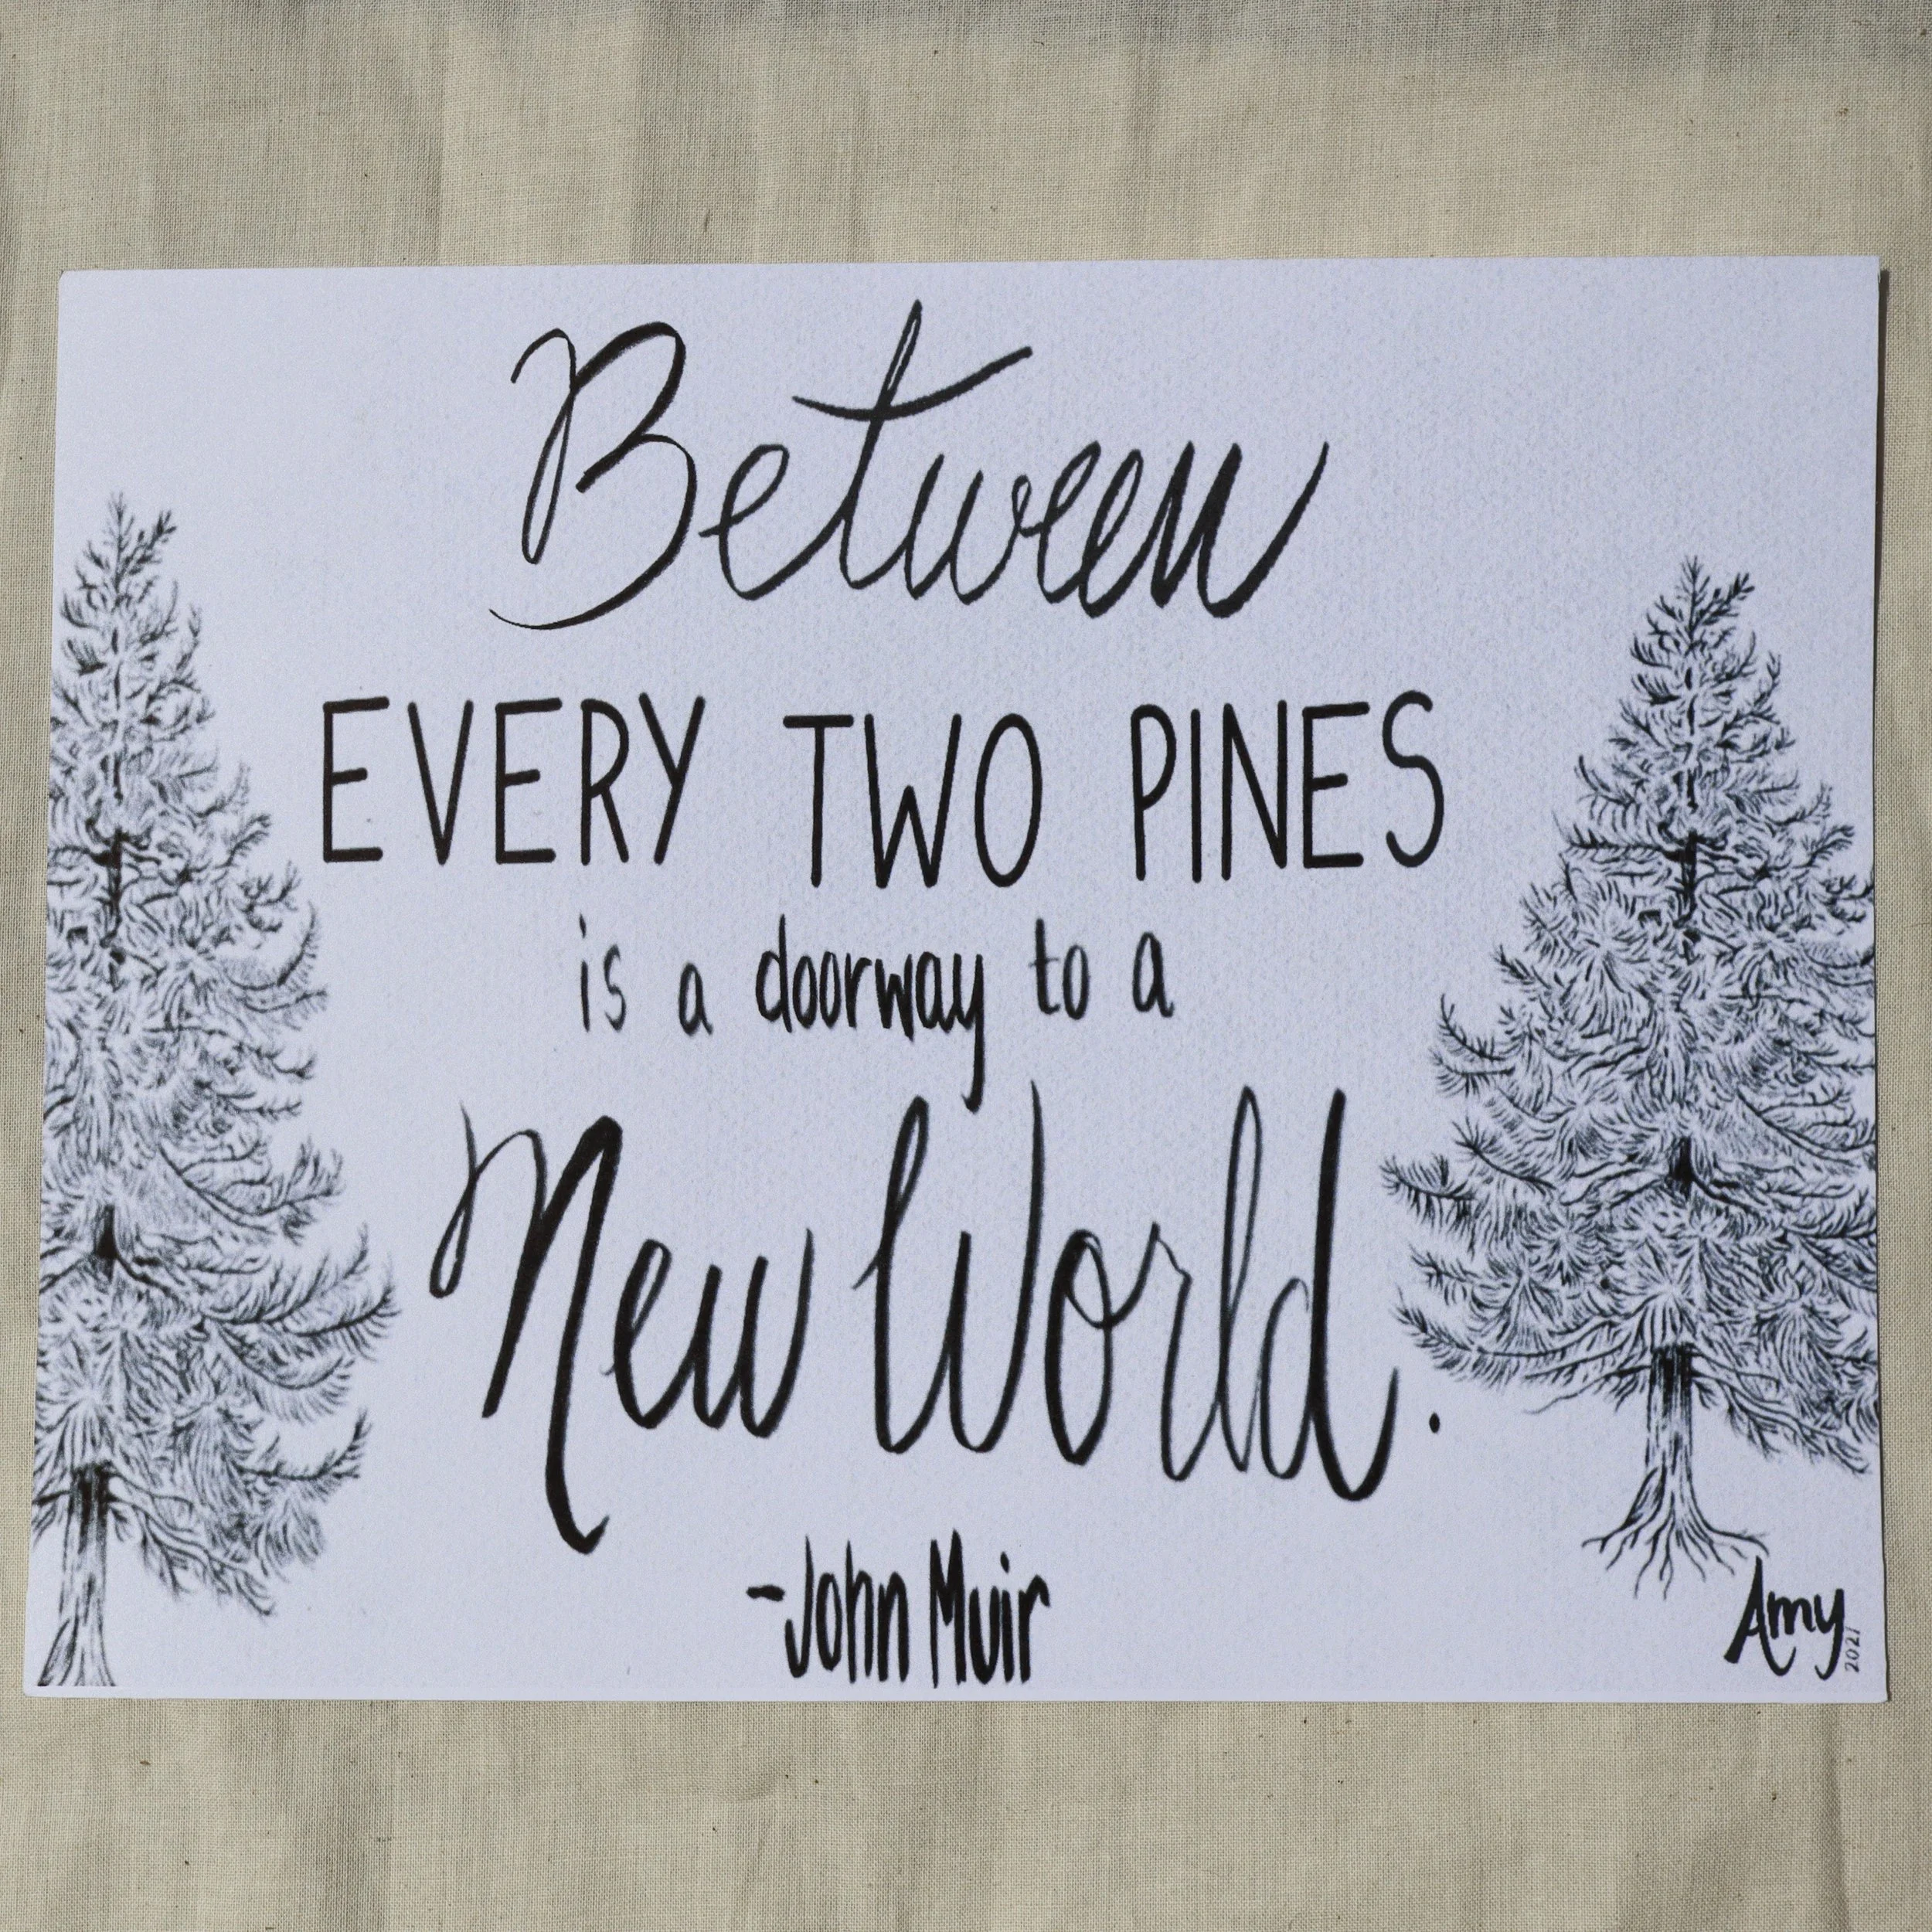 Between
EVERY TWO PINES
is a doorway to a
New World.
-John Muir
Amy
2021